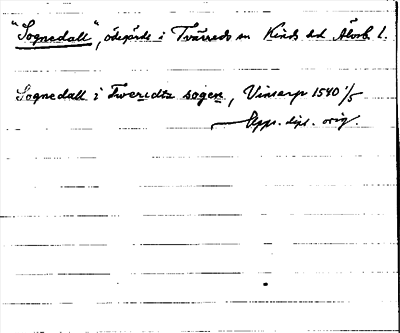 "Sognedall", ödegärde i Tvärreds sn Kinds hd Älvsb. l.
Sognedall i Tweredtz sogen, Vinsarp 1540 1/5
Upps. dipl. orig.